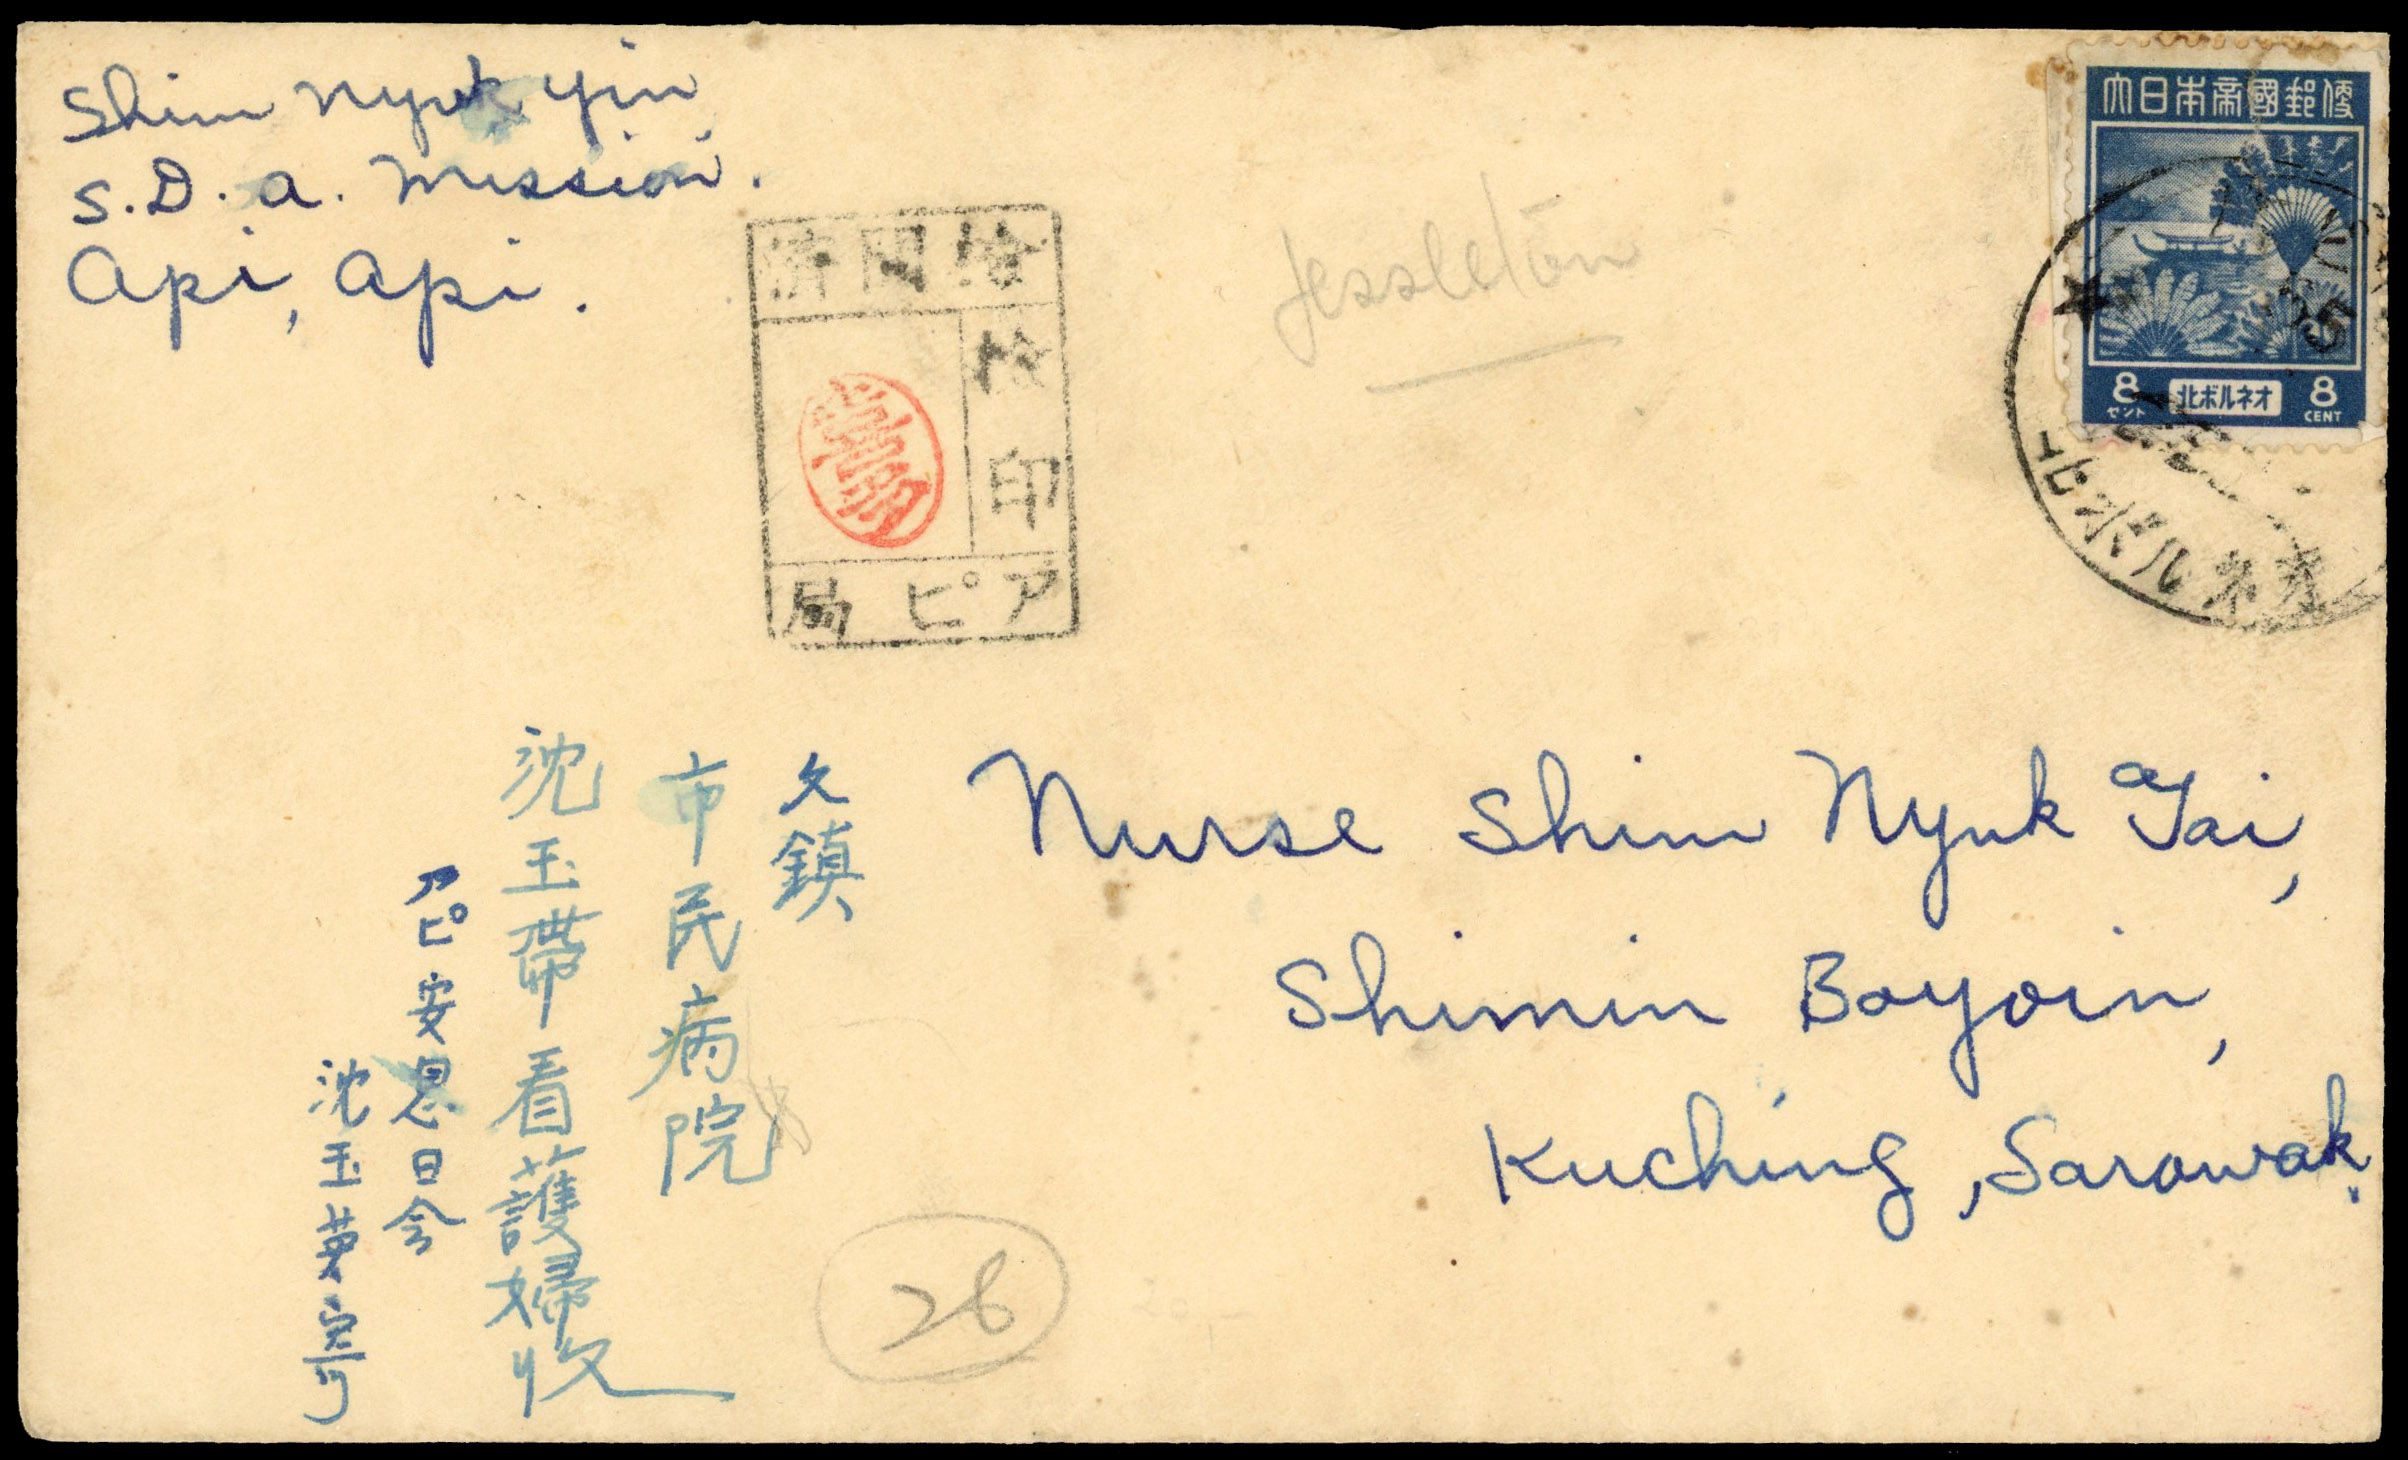 Shim Nyuk Yin,
S.D.A. Mission.
Api, Api.
大日本帝國郵便
8 セント
北ボルネオ
8 CENT
Jessleton
済閲検
検
印
局ピア
北ボルネオ
Nurse Shim Nyuk Tai,
Shimin Boyoin,
Kuching, Sarawak.
久鎮
市民病院
沈玉帶看護婦收
アピ安息日会
沈玉英寄
26